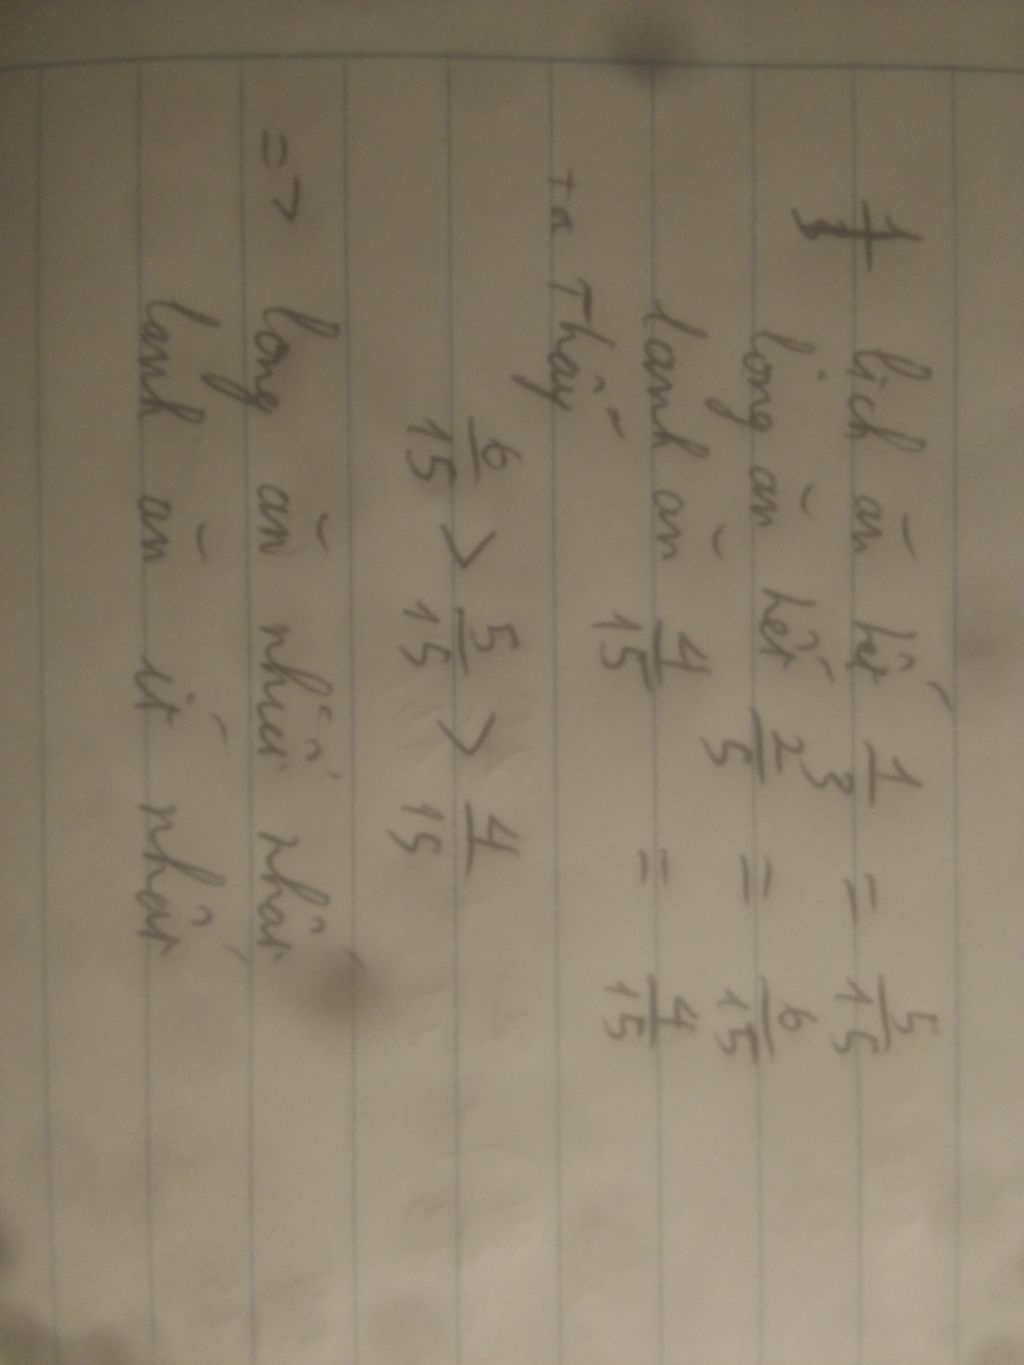 lich ăn hết 1/3 = 5/15
long ăn hết 2/5 = 6/15
lanh ăn 4/15 = 4/15
ta Thấy
6/15 > 5/15 > 4/15
=> long ăn nhiều nhất
lanh ăn ít nhất